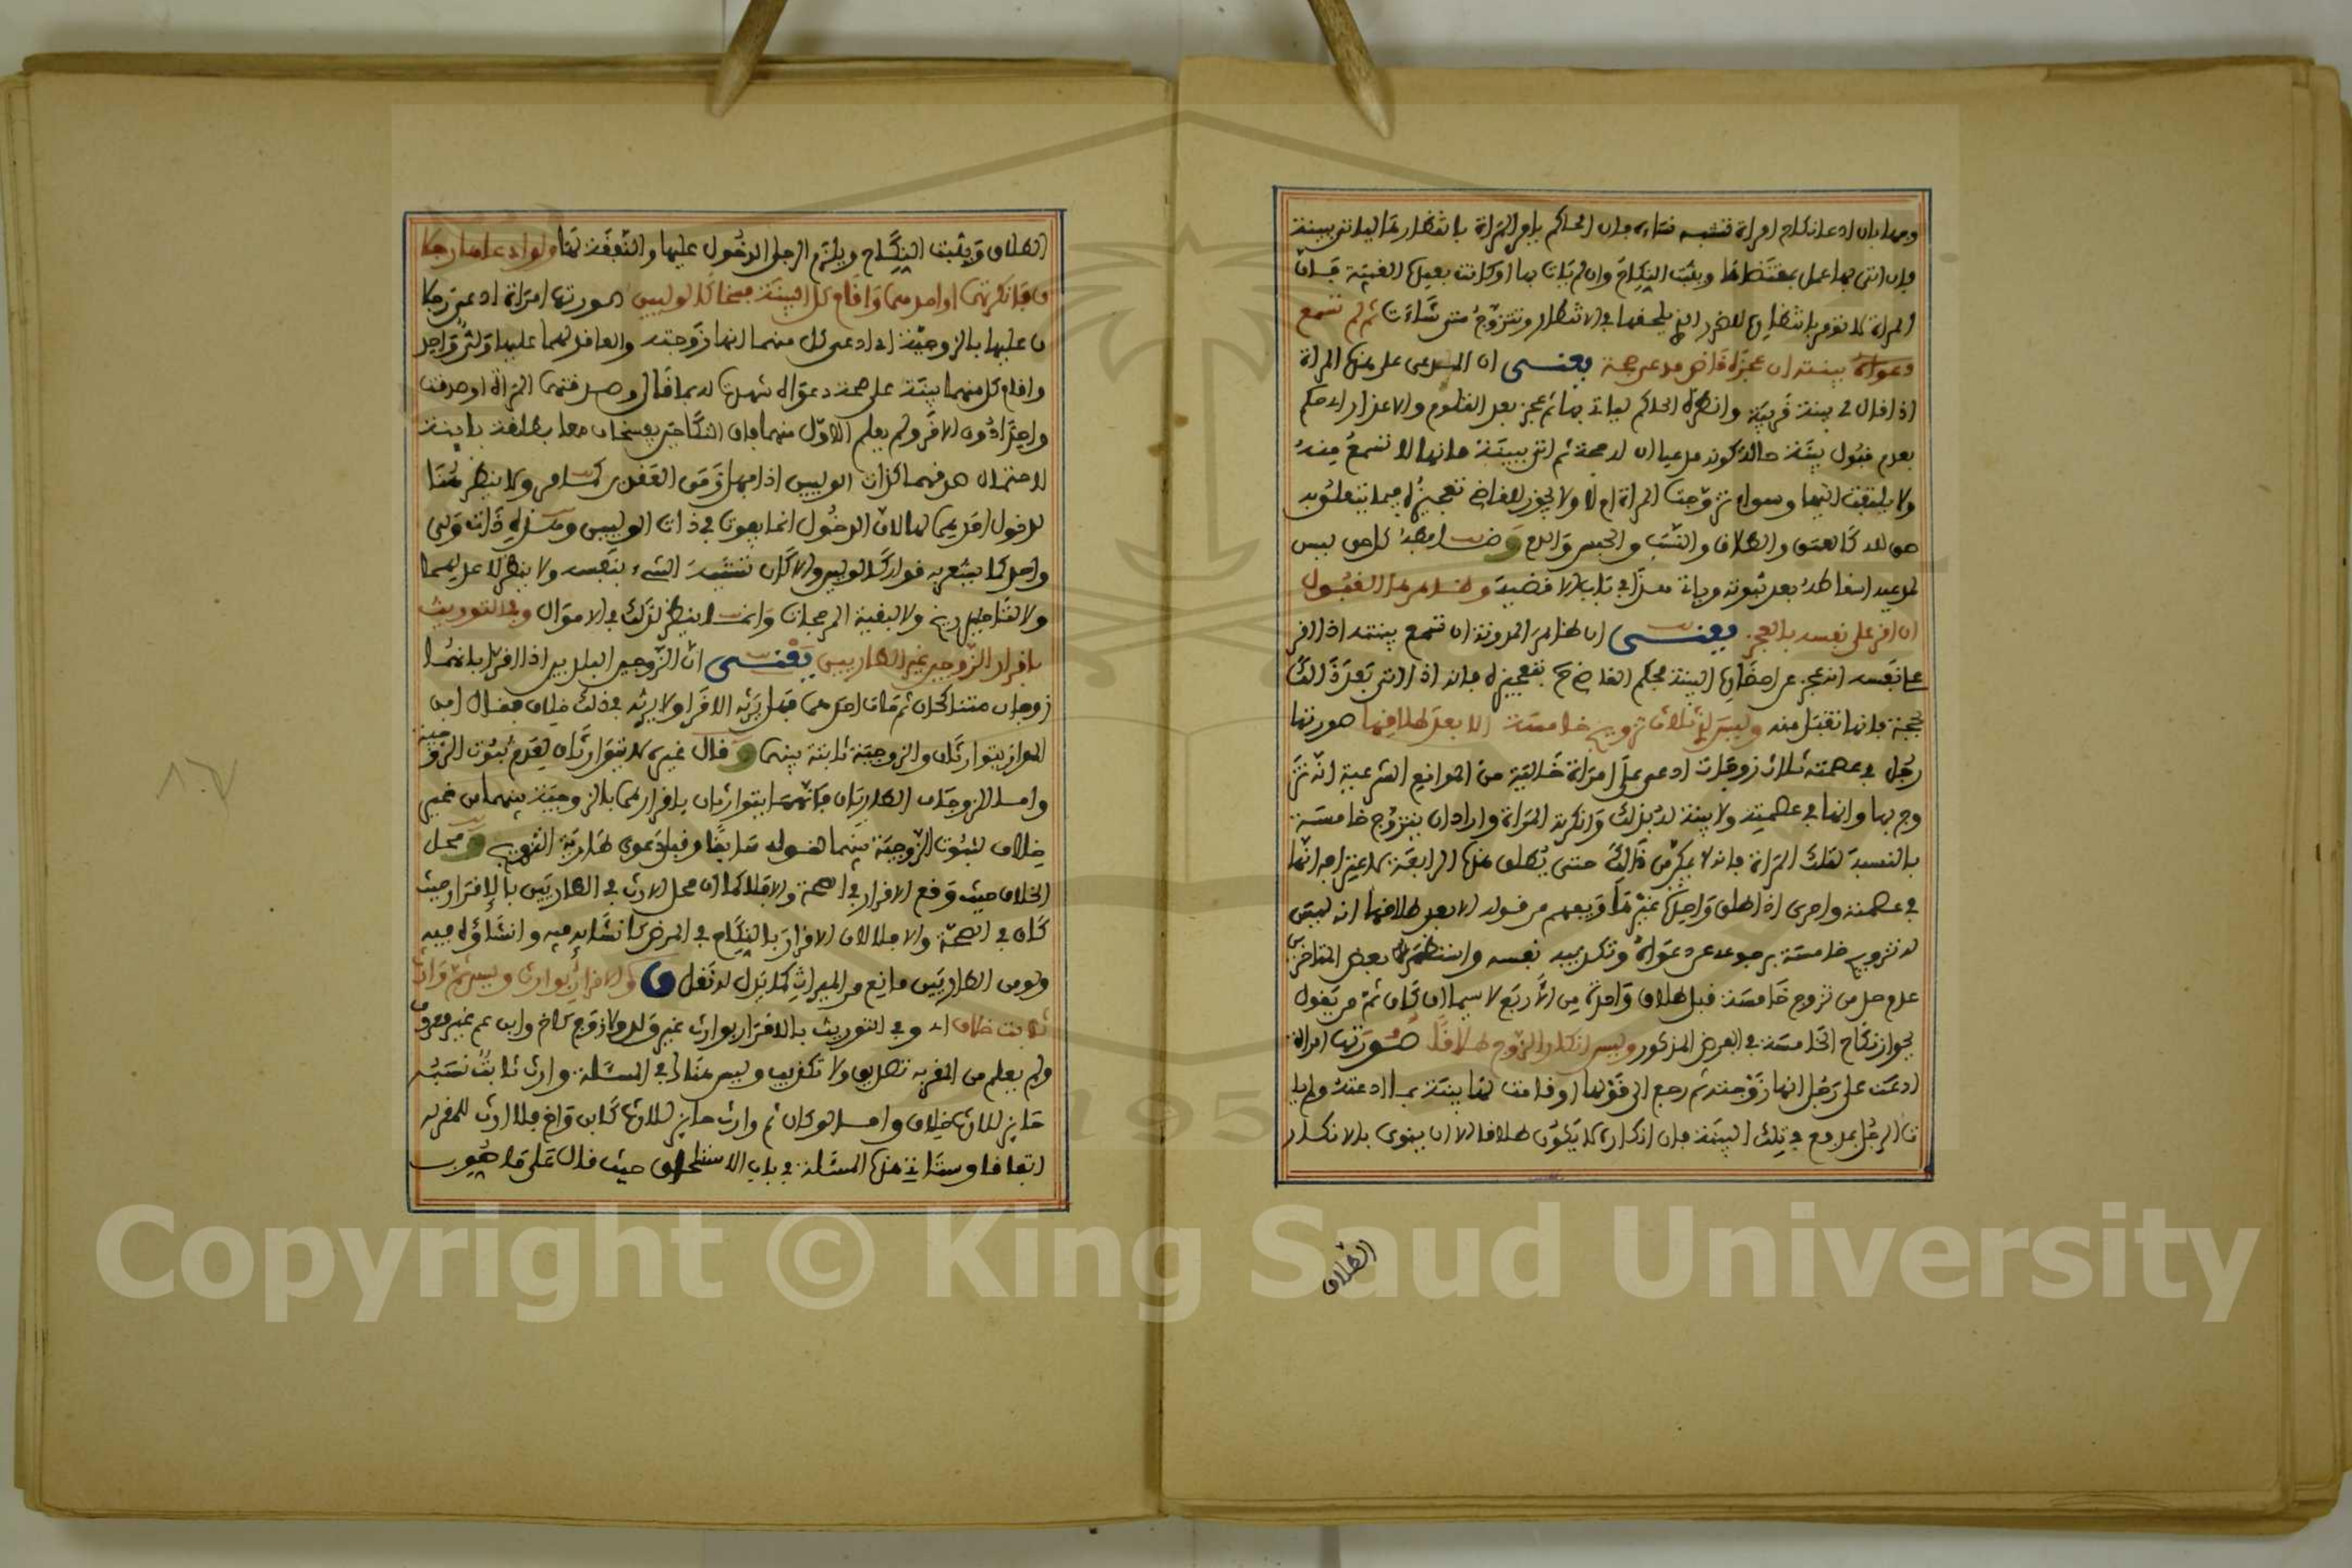 ومها بان ادعا نكاح امراة فتشبه نساءه فان الحاكم يامر المراة بانتظارها لياتي ببينة
فان اتى بها عمل بمقتضاها ويثبت النكاح وان لم يات بها او كانت بعيدة الغيبة فان
المراة لا تومر بانتظارها للضرر الذي يلحقها في الانتظار وتتزوج متى شاءت ثم لم تسمع
دعواه ببينته ان عجزه قاض مدعي حجة يعني ان المدعي على هذه المراة
اذا قال لي بينة قريبة وانظره الحاكم لياتي بها ثم عجز بعد التلوم والاعذار اذ حكم
بعدم قبول بينة حالة كونه مدعيا ان له حجة ثم اتى ببينة فانها لا تسمع منه
ولا يلتفت اليها وسواء تزوجت المراة ام لا ولا يجوز للقاضي تعجيزه فيما يتعلق به
حق لله كالعتق والطلاق والنسب والحبس والدم و كل حق ليس
لمدعيه اسقاطه بعد ثبوته وياتي هذا في باب الاقضية وظاهرها القبول
ان اقر على نفسه بالعجز يعني ان ظاهر المدونة ان تسمع بينته اذا اقر
على نفسه انه عجز عن احضار البينة فحكم القاضي ح بتعجيزه فانه اذا اتى بعد ذالك
بحجة فانها تقبل منه وليس لذي ثلاث تزويج خامسة الا بعد طلاقها صورتها
رجل في عصمته ثلاث زوجات ادعى على امراة خالية من الموانع الشرعية انه تز
وج بها وانها في عصمته ولا بينة له بذلك وانكرته المراة واراد ان يتزوج خامسة
بالنسبة لتلك المراة فانه لا يمكن من ذالك حتى يطلق هذه الرابعة لاعترافه انها
في عصمته واحرى اذا طلق واحدة غيرها ويفهم من قوله الا بعد طلاقها انه ليس
له تزويج خامسة برجوعه عن دعواه وتكذيبه نفسه واستظهر بعض المتاخرين
عدم حل من تزوج خامسة قبل طلاق واحدة من الاربع لا سيما ان كان ثم من يقول
بجواز نكاح الخامسة في الفرض المذكور وليس انكار الزوج طلاقا صورتها امراة
ادعت على رجل انها زوجته ثم رجع الى قولها او قامت لها بينة بما ادعته ولم يا
ت الرجل بمدفع في تلك البينة فان انكاره لا يكون طلاقا الا ان ينوي بالانكار
الطلاق
الطلاق ويثبت النكاح ويلزم الرجل الدخول عليها والنفقة لها ولو ادعاها رجلا
ن فانكرتهما او احدهما واقام كل البينة فسخا كالوليين صورتها امراة ادعى رجلا
ن عليها بالزوجية اي ادعى كل منهما انها زوجته والعاقد لهما عليها ولي واحد
واقام كل منهما بينة على صحة دعواه شهدت له بما قال وصدقتهما المراة او صدقت
واحدا دون الاخر ولم يعلم الاول منهما فان النكاحين يفسخان معا بطلقة باينة
لاحتمال صدقهما كذات الوليين اذا جهل زمن العقدين كما مر ولا ينظر هنا
لدخول احدهما لها لان الدخول انما يفوت في ذات الوليين ومسئلة ذات ولي
واحد كما يشعر به قوله كالوليين والا كان تشبيه الشيء بنفسه ولا ينظر لاعدليهما
ولا لتاخير تاريخ ولا لبقية المرجحات وانما ينظر لذلك في الاموال وفي التوريث
باقرار الزوجين غير الطاريين يعني ان الزوجين البلديين اذا اقرا بانهما
زوجان متناكحان ثم مات احدهما فهل يرثه الاخر او لا يرثه في ذلك خلاف فقال ابن
المواز يتوارثان والزوجية ثابتة بينهما و قال غيره لا يتوارثان لعدم ثبوت الزوجية
واما الزوجان الطاريان فانهما يتوارثان باقرارهما بالزوجية بينهما من غير
خلاف لثبوت الزوجية بينهما لقوله سابقا وقبل دعوى طارية التزويج و محل
الخلاف حيث وقع الاقرار في الصحة والا فلا كما ان محل الارث في الطاريين بالاقرار حيث
كان في الصحة والا فلا لان الاقرار بالنكاح في المرض كانشايه فيه وانشاؤه فيه
ولو من الطاريين مانع من الميراث كما يدل له نقل ق والاقرار بوارث وليس ثم وارث
ثابت خلاف اي وفي التوريث بالاقرار بوارث غير ولد ولا زوج كاخ وابن عم غير معروف
ولم يعلم من المقر به تصديق ولا تكذيب وليس هناك في المسئلة وارث ثابت نسبه
حايز للارث خلاف واما لو كان ثم وارث حايز للارث كابن واخ فلا ارث للمقر به
اتفاقا وستاتي هذه المسئلة في باب الاستلحاق حيث قال على ما صوب